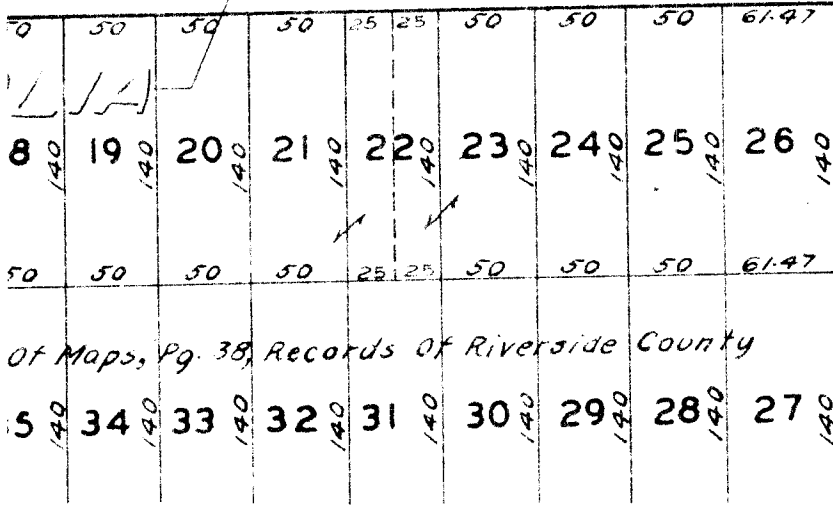 50 50 50 25 25 50 50 50 61.47
8 140 19 140 20 140 21 140 22 140 23 140 24 140 25 140 26 140
50 50 50 50 25 25 50 50 50 61.47
Of Maps, Pg. 38, Records Of Riverside County
5 140 34 140 33 140 32 140 31 140 30 140 29 140 28 140 27 140